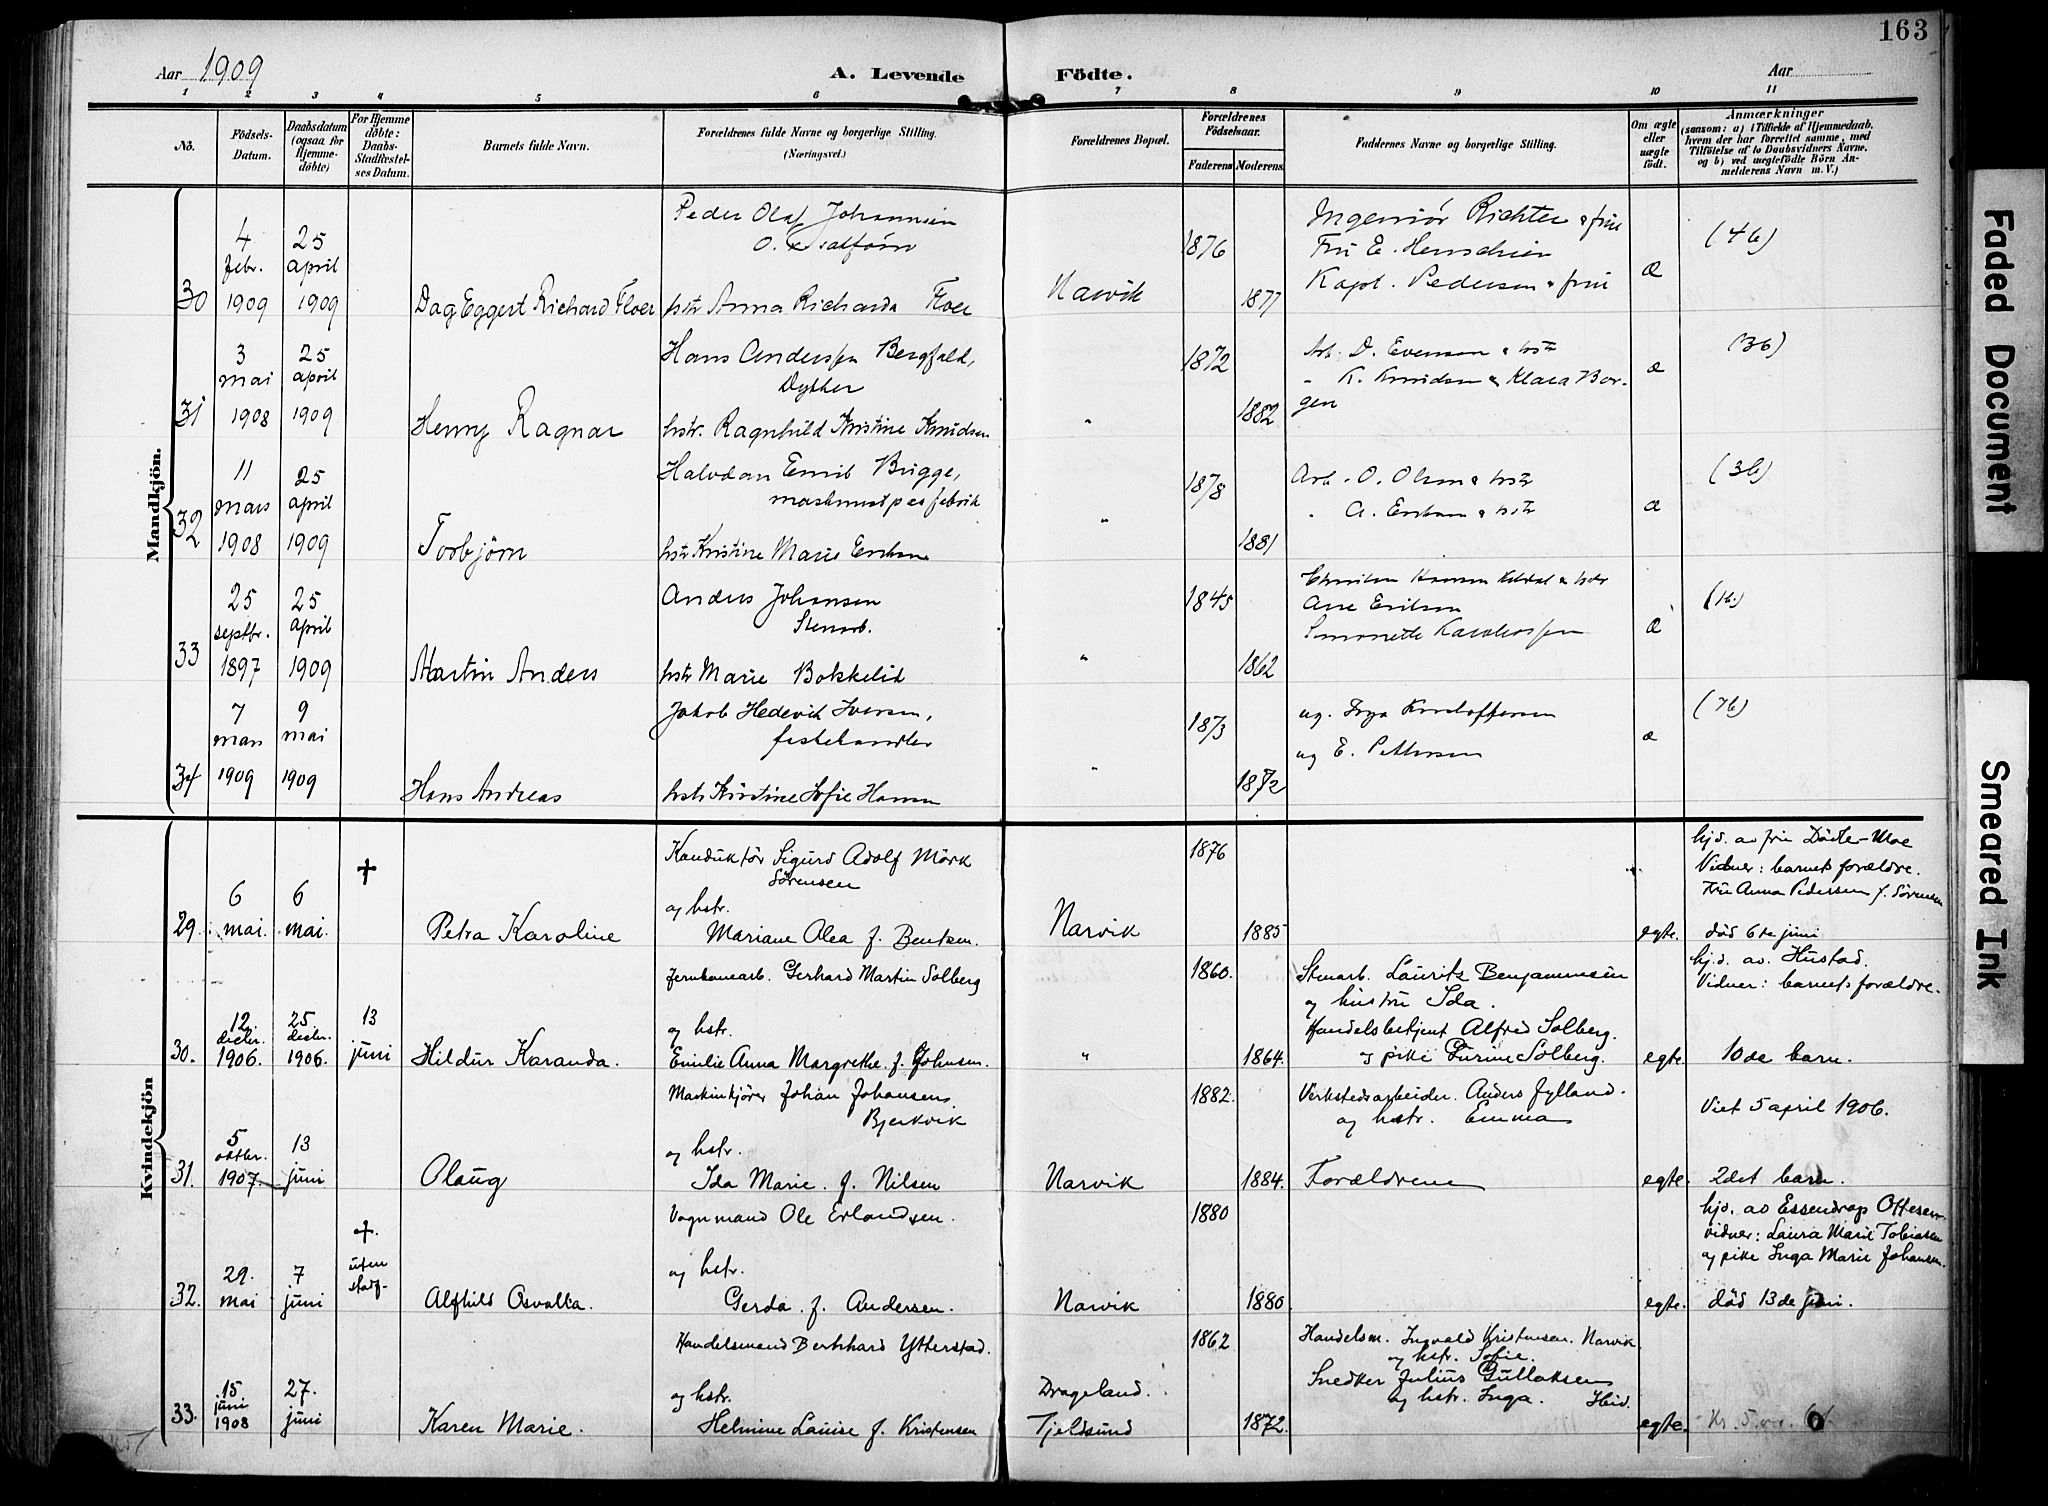 163
Aar 1909
A. Levende Födte.
Aar
1 2 3 4 5 6 7 8 9 10 11
No.
Födsels-
Datum.
Daabsdatum
(ogsaa for
Hjemme-
döbte)
For Hjemme
döbte:
Daabs-
Stadfæstel-
ses Datum.
Barnets fulde Navn.
Forældrenes fulde Navne og borgerlige Stilling.
(Næringsvei.)
Forældrenes Bopæl.
Forældrenes
Födselsaar.
Faderens Moderens
Faddernes Navne og borgerlige Stilling.
Om ægte
eller
uægte
födt.
Anmærkninger
(saasom: a) i Tilfælde af Hjemmedaab,
hvem der har forrettet samme, med
Tilföielse af to Daabsvidners Navne,
og b) ved uægtefödte Börn An-
melderens Navn m. V.)
Mandkjön.
30
4
febr.
1909
25
april
1909
Dag Eggert Richard Floer
Peder Olaf Johannsen
hstr Anna Richarda Floer
Narvik
1876
1877
Ingeniör Richter & frue
Fru E.
Kapt. Pedersen & frue
æ
(4b)
31
3
mai
1908
25
april
1909
Henry Ragnar
Hans Anderssen Bergfald,
Dykker
hstr. Ragnhild Kristine Knudsen
"
1872
1882
Arb. D. Evensen & hstr
" K. Knudsen & Klara Bor-
gen
æ
(3b)
32
11
mars
1908
25
april
1909
Torbjörn
Halvdan Emil Brigge,
hstr Kristine Marie
"
1878
1881
Arb. O. Olsen & hstr
" A. & hstr
æ
(3b)
33
25
septbr.
1897
25
april
1909
Martin Anders
Anders Johansen
Stenarb.
hstr Marie Bokkelid
"
1845
1862
Hansen & hstr
Arne Eriksen
æ
34
7
mars
1909
9
mai
1909
Hans Andreas
Jakob Hedevik Iversen,
fiskehandler
hstr Kristine Sofie Hansen
"
1873
1872
ug. Kristoffersen
ug E. Pettersen
æ
(7b)
Kvindekjön
29.
6
mai.
6
mai.
†
Petra Karoline
Konduktör Sigurd Adolf Mörk
Sörensen
og hstr.
Mariane Olea f. Bentsen.
Narvik
1876
1885
egte.
hjd. av fru Döster-Moe
Vidner: barnets forældre.
Fru Anna Pedersen f. Sörensen
död 6te juni
30.
12.
decbr.
1906.
25.
decbr.
1906.
13
juni
Hildur Karanda.
Jernbanearb. Gerhard Martin Solberg
og hstr.
Emilie Anna Margrethe. f. Johnsen.
"
1860.
1864.
Stenarb. Laurits Benjaminsen
og hustru Ida.
Handelsbetjent Alfred Solberg.
og pike Purine Solberg.
egte.
hjd. av. Hustad.
Vidner: barnets forældre.
10de barn.
31.
5
oktbr.
1907.
13
juni
Olaug
Maskinkjörer Johan Johansen
Bjerkvik
og hstr.
Ida Marie. f. Nilsen
Narvik
1882.
1884.
Verkstedsarbeider. Anders Jylland.
og hstr. Emma
Forældrene
egte.
Viet 5 april 1906.
2det barn.
32.
29.
mai
7
juni
†.
uten
stadf-
Alfhild Osvalda.
Vognmand Ole Erlandsen.
og hstr.
Gerda. f. Andersen.
Narvik
1880
1880
egte.
hjd. av Essendrop Ottesen
vidner: Laura Marie Tobiasen
og pike Inga Marie Johansen.
död 13de juni.
33.
15
juni
1908
27.
juni
Karen Marie.
Handelsmand Bernhard Ytterstad.
og hstr.
Helmine Louise f. Kristensen
Drageland.
Tjeldsund
1862
1872.
Handelsm. Ingvald Kristensen. Narvik
og hstr. Sofie.
Snedker Julius Gullaksen
og hstr. Inga. Heid.
egte.
Faded Document
Smeared Ink